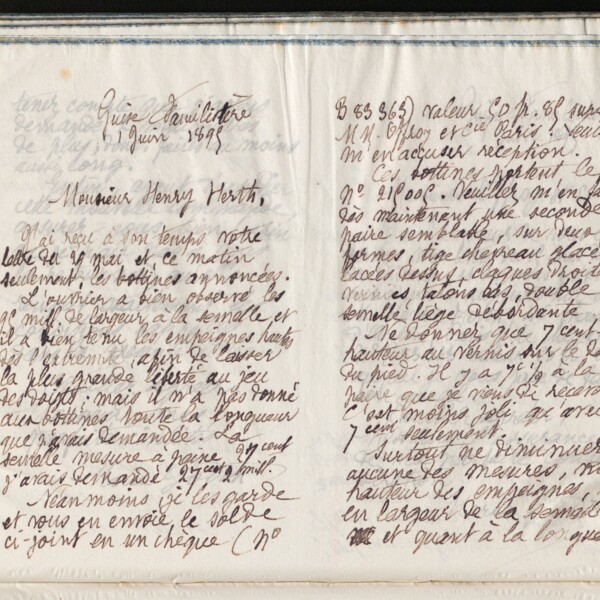 Guise Familistère
1 Juin 1895
Monsieur Henry Herth,
J'ai reçu à son temps votre
lettre du 29 mai et ce matin
seulement, les bottines annoncées.
L'ouvrier a bien observé les
95 mill. de largeur à la semelle et
il a bien tenu les empeignes hautes
dès l'extrémité, afin de laisser
la plus grande liberté au jeu
des doigts; mais il n'a pas donné
aux bottines toute la longueur
que j'avais demandée. La
semelle mesure à peine 27 cent
j'avais demandé 27 cent 2 mill.
Néanmoins je les garde
et vous en envoie le solde
ci-joint en un chèque (No
B 83 363) valeur 50 f. 85
MM. Offroy et Cie Paris.
m'en accuser réception.
Ces bottines portent le
No 215005. Veuillez m'en
dès maintenant une seconde
paire semblable, sur deux
formes, tige chevreau glacé
lacées dessus, claques droites
vernies, talons bas, double
semelle liège débordante
Ne donner que 7 cent
hauteur au vernis sur le
du pied. Il y a 7 c 1/2 à la
paire que je viens de
C'est moins joli qu'avec
7 cent seulement.
Surtout ne diminuer
aucune des mesures,
hauteur des empeignes,
en largeur de la
et quant à la